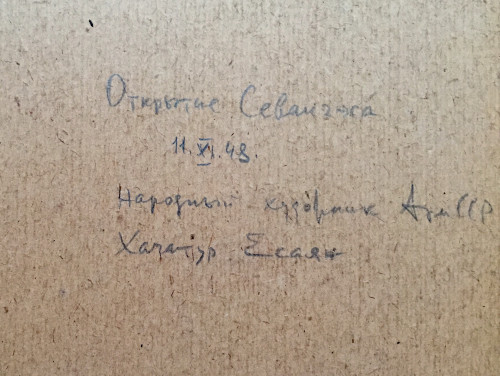 Открытие Севангэса
11.XI.48.
Народный художник АрмССР
Хачатур Есаян